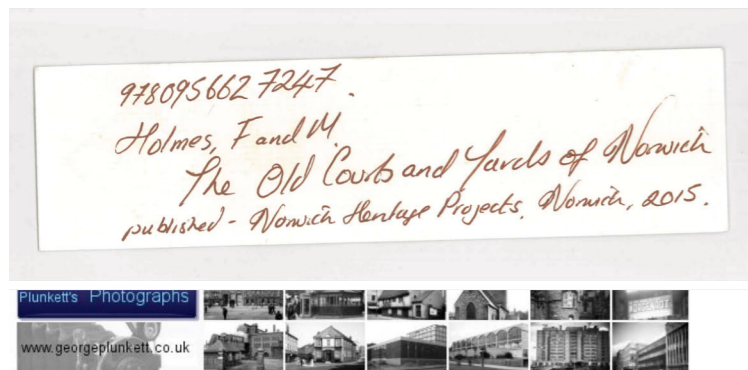 9780956627247.
Holmes, F and M.
The Old Courts and Yards of Norwich
published - Norwich Heritage Projects, Norwich, 2015.
Plunkett's Photographs
www.georgeplunkett.co.uk